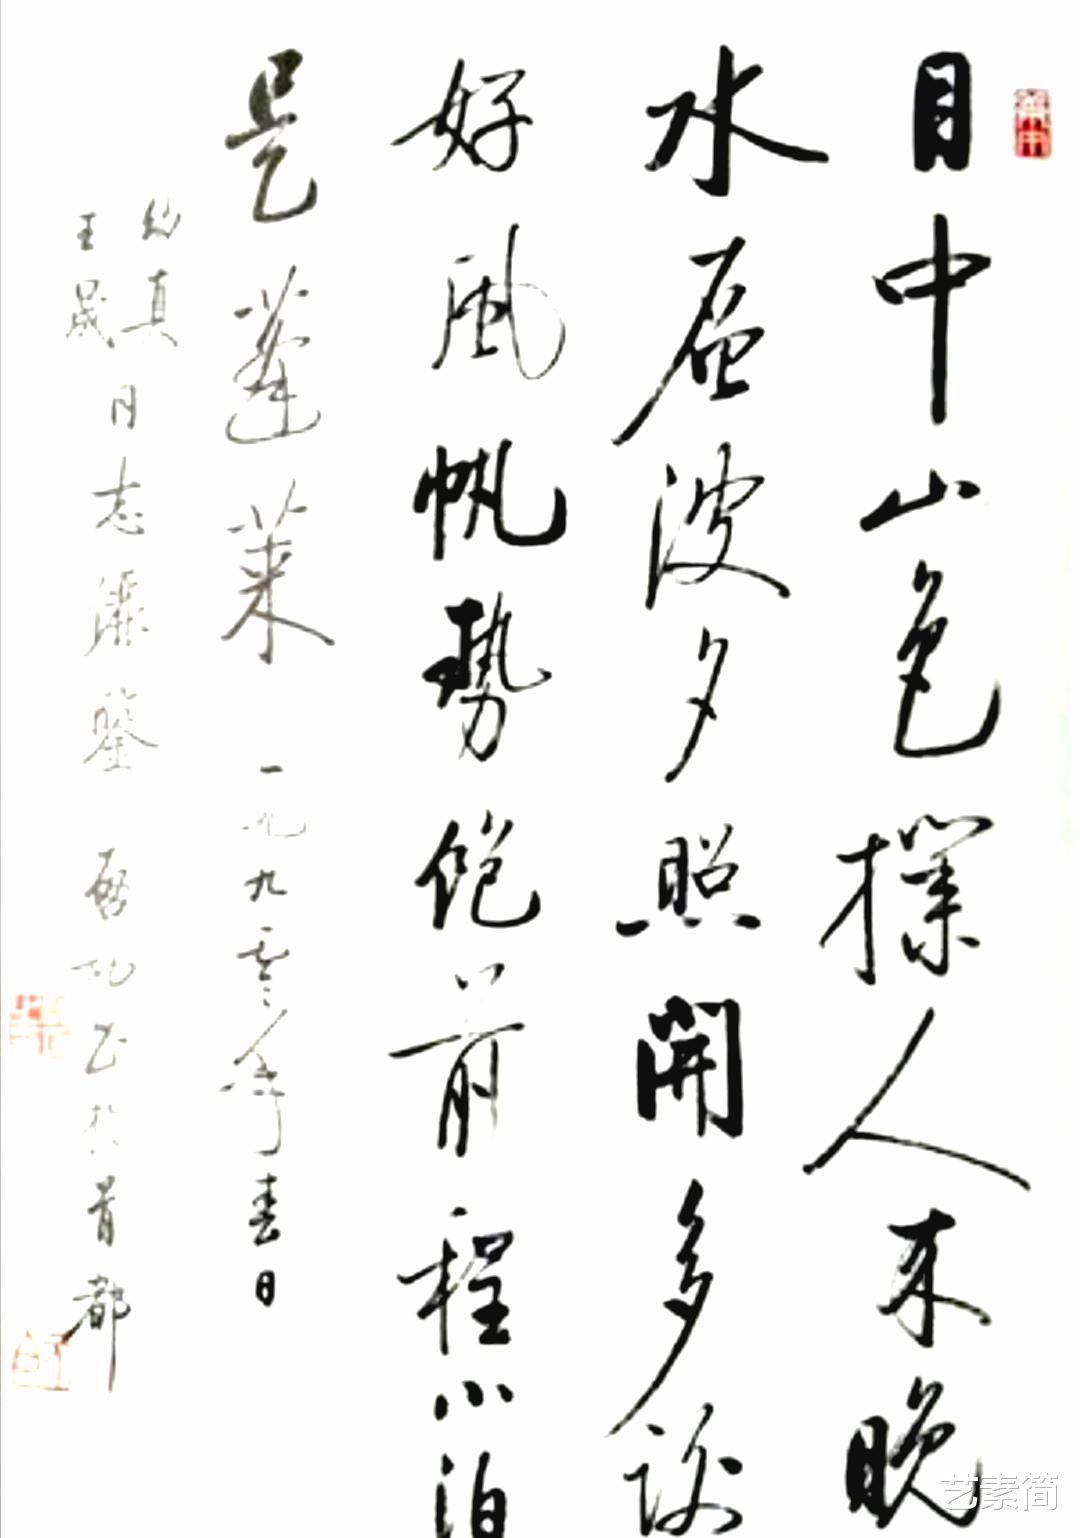 目中山色撲人来晚
水層波夕照開多謝
好風帆勢飽前程小泊
是蓬萊 一九九零年春日
真
王晟
同志鑒 啓功書於首都
艺素简